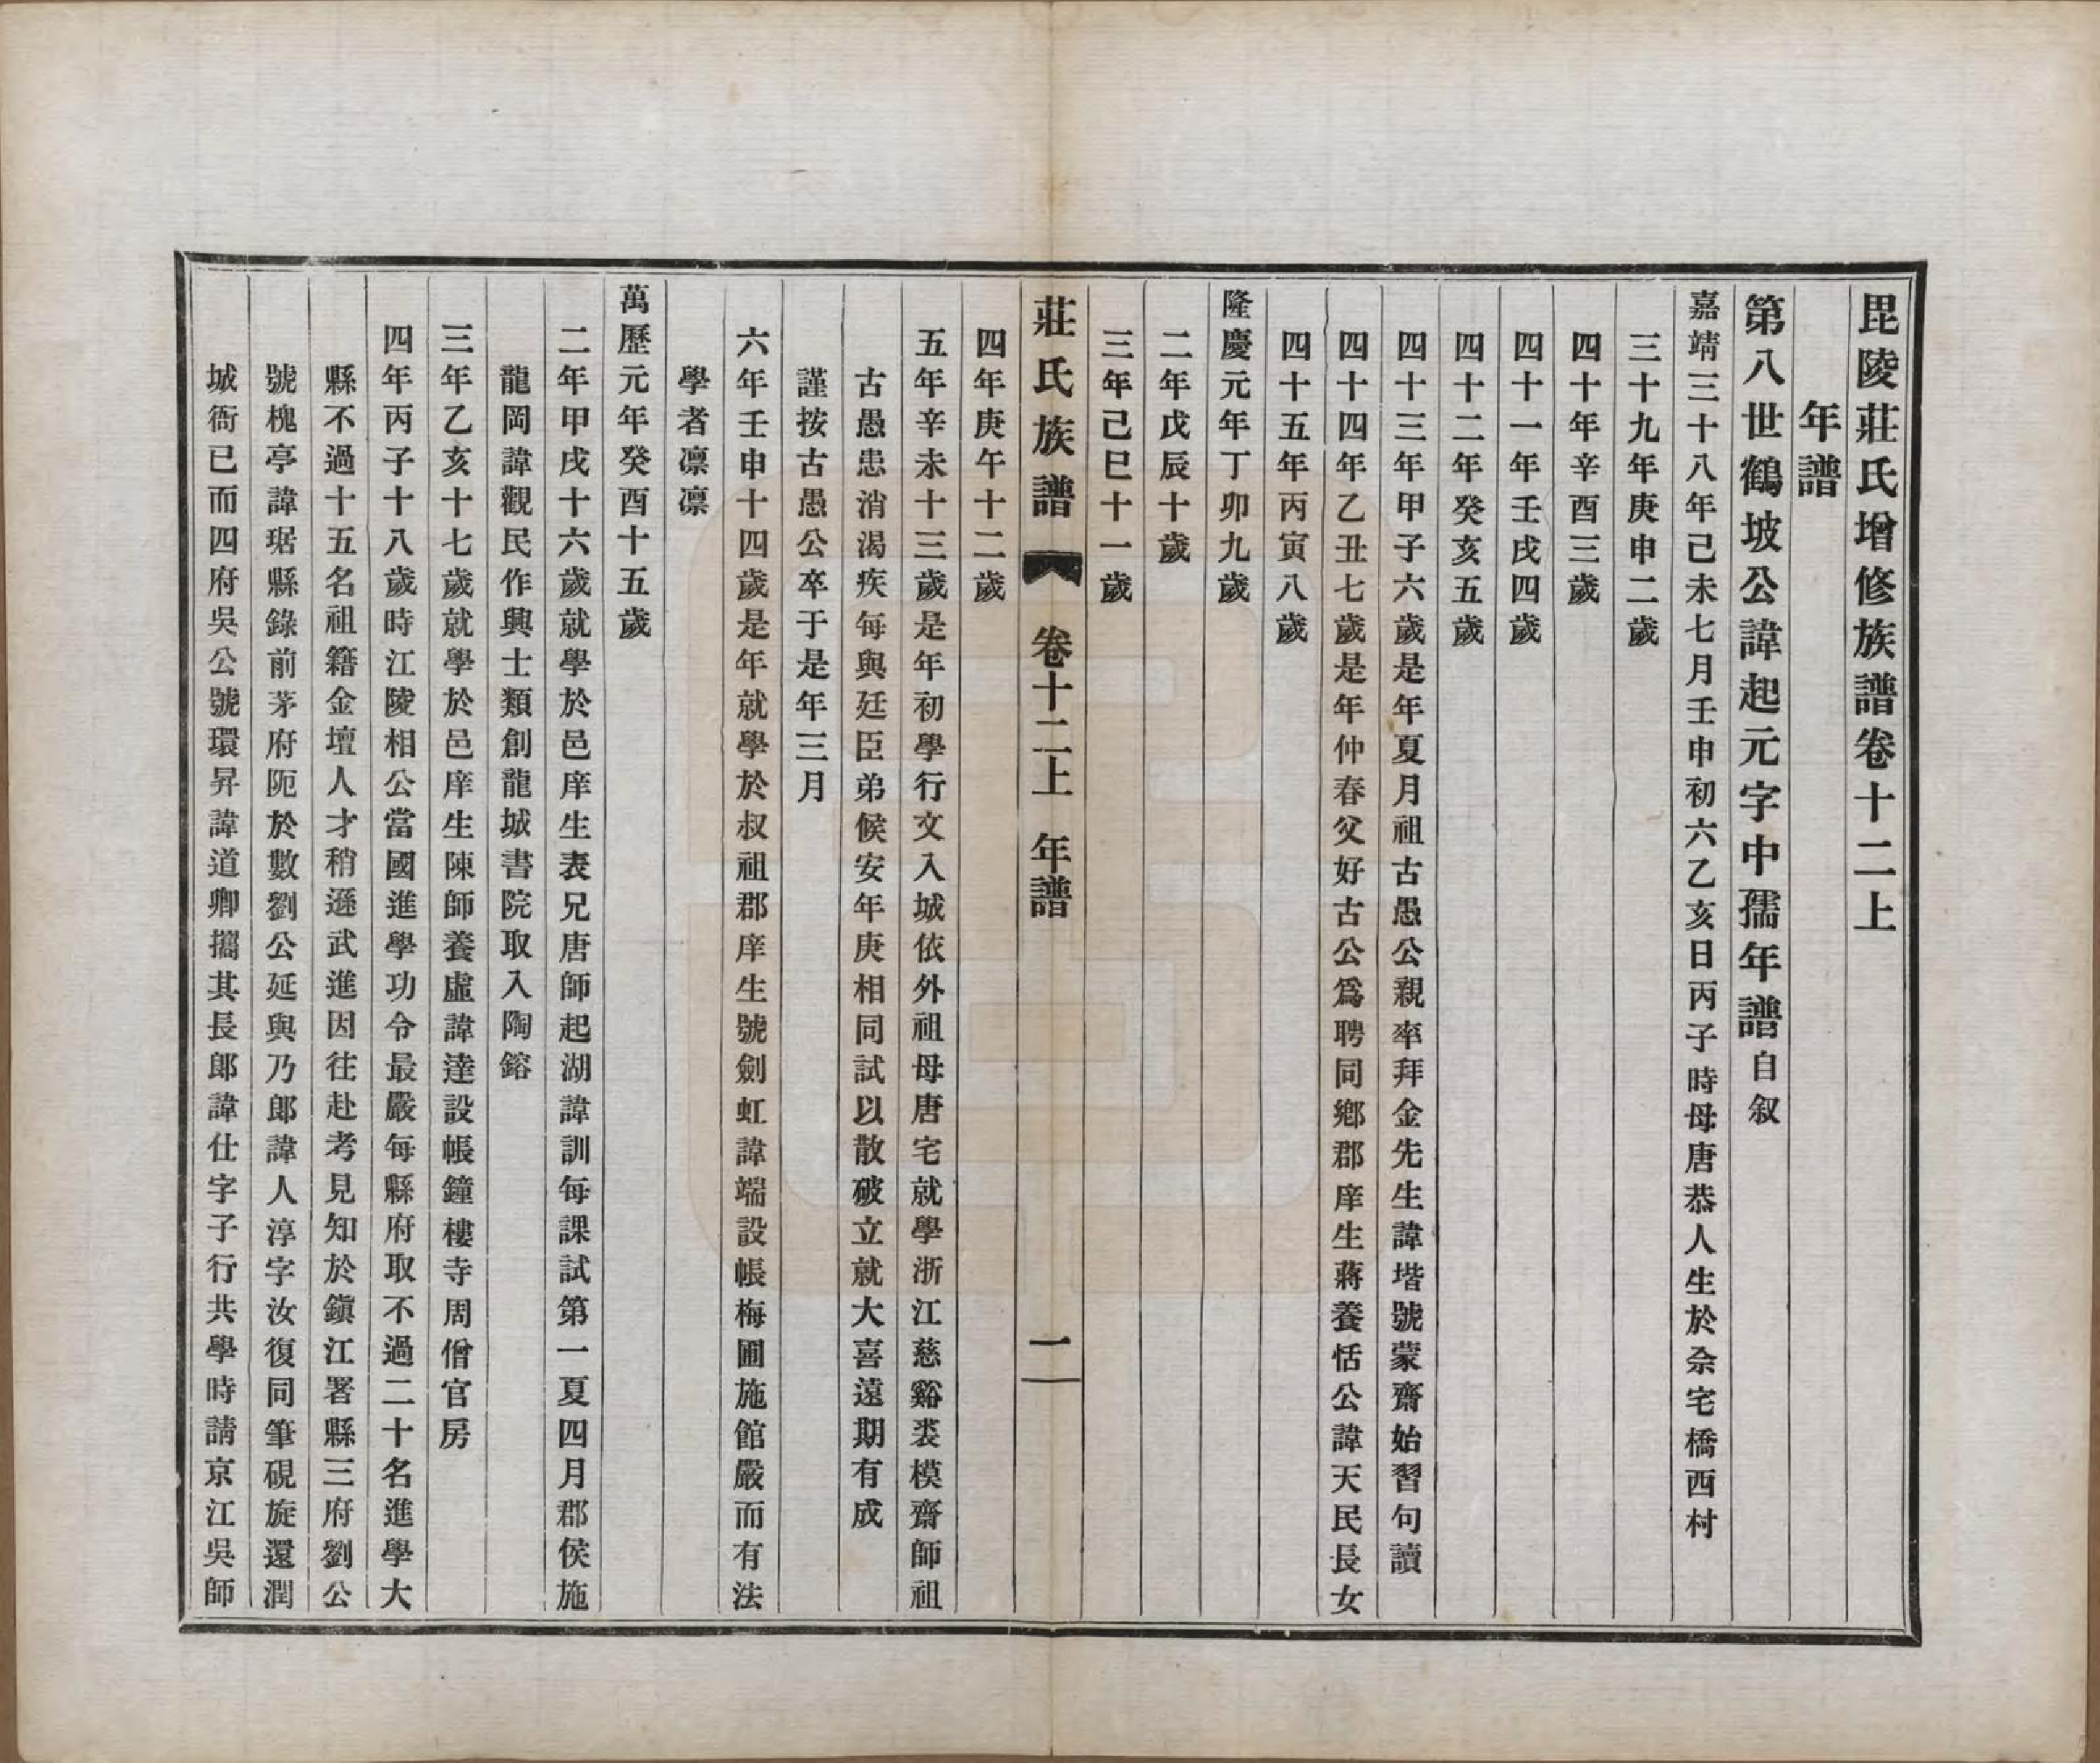 毘陵莊氏增修族譜卷十二上
年譜
第八世鶴坡公諱起元字中孺年譜自叙
嘉靖三十八年己未七月壬申初六乙亥日丙子時母唐恭人生於余宅橋西村
三十九年庚申二歲
四十年辛酉三歲
四十一年壬戌四歲
四十二年癸亥五歲
四十三年甲子六歲是年夏月祖古愚公親率拜金先生諱堦號蒙齋始習句讀
四十四年乙丑七歲是年仲春父好古公爲聘同鄉郡庠生蔣養恬公諱天民長女
四十五年丙寅八歲
隆慶元年丁卯九歲
二年戊辰十歲
三年己巳十一歲
莊氏族譜 卷十二上 年譜 一
四年庚午十二歲
五年辛未十三歲是年初學行文入城依外祖母唐宅就學浙江慈谿裘模齋師祖
古愚患消渴疾每與廷臣弟候安年庚相同試以散破立就大喜遠期有成
謹按古愚公卒于是年三月
六年壬申十四歲是年就學於叔祖郡庠生號劍虹諱端設帳梅圃施館嚴而有法
學者凛凛
萬歷元年癸酉十五歲
二年甲戌十六歲就學於邑庠生表兄唐師起湖諱訓每課試第一夏四月郡侯施
龍岡諱觀民作興士類創龍城書院取入陶鎔
三年乙亥十七歲就學於邑庠生陳師養虛諱逹設帳鐘樓寺周僧官房
四年丙子十八歲時江陵相公當國進學功令最嚴每縣府取不過二十名進學大
縣不過十五名祖籍金壇人才稍遜武進因往赴考見知於鎭江署縣三府劉公
號槐亭諱琚縣錄前茅府阨於數劉公延與乃郞諱人淳字汝復同筆硯旋還潤
城衙已而四府吳公號環昇諱道卿攜其長郞諱仕字子行共學時請京江吳師